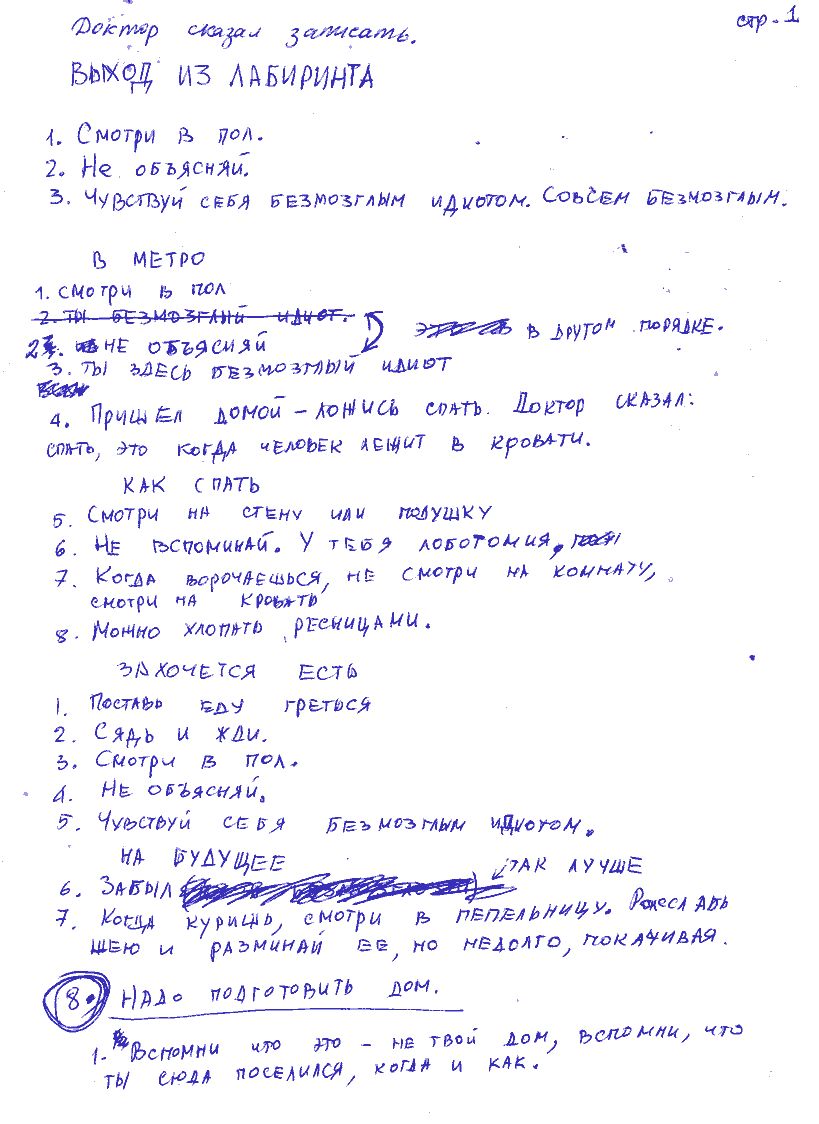 Доктор сказал записать.
стр. 1
ВЫХОД ИЗ ЛАБИРИНТА
1. Смотри в пол.
2. Не объясняй.
3. Чувствуй себя безмозглым идиотом. Совсем безмозглым.
В МЕТРО
1. Смотри в пол
2. Ты безмозглый идиот.
в другом порядке.
2. Не объясняй
3. Ты здесь безмозглый идиот
4. Пришел домой – ложись спать. Доктор сказал:
спать, это когда человек лежит в кровати.
КАК СПАТЬ
5. Смотри на стену или подушку
6. Не вспоминай. У тебя лоботомия.
7. Когда ворочаешься, не смотри на комнату,
смотри на кровать
8. Можно хлопать ресницами.
ЗАХОЧЕТСЯ ЕСТЬ
1. Поставь еду греться
2. Сядь и жди.
3. Смотри в пол.
4. Не объясняй.
5. Чувствуй себя безмозглым идиотом.
НА БУДУЩЕЕ
так лучше
6. Забыл
7. Когда куришь, смотри в пепельницу. Расслабь
шею и разминай ее, но недолго, покачивая.
8. Надо подготовить дом.
1. Вспомни что это – не твой дом, вспомни, что
ты сюда поселился, когда и как.